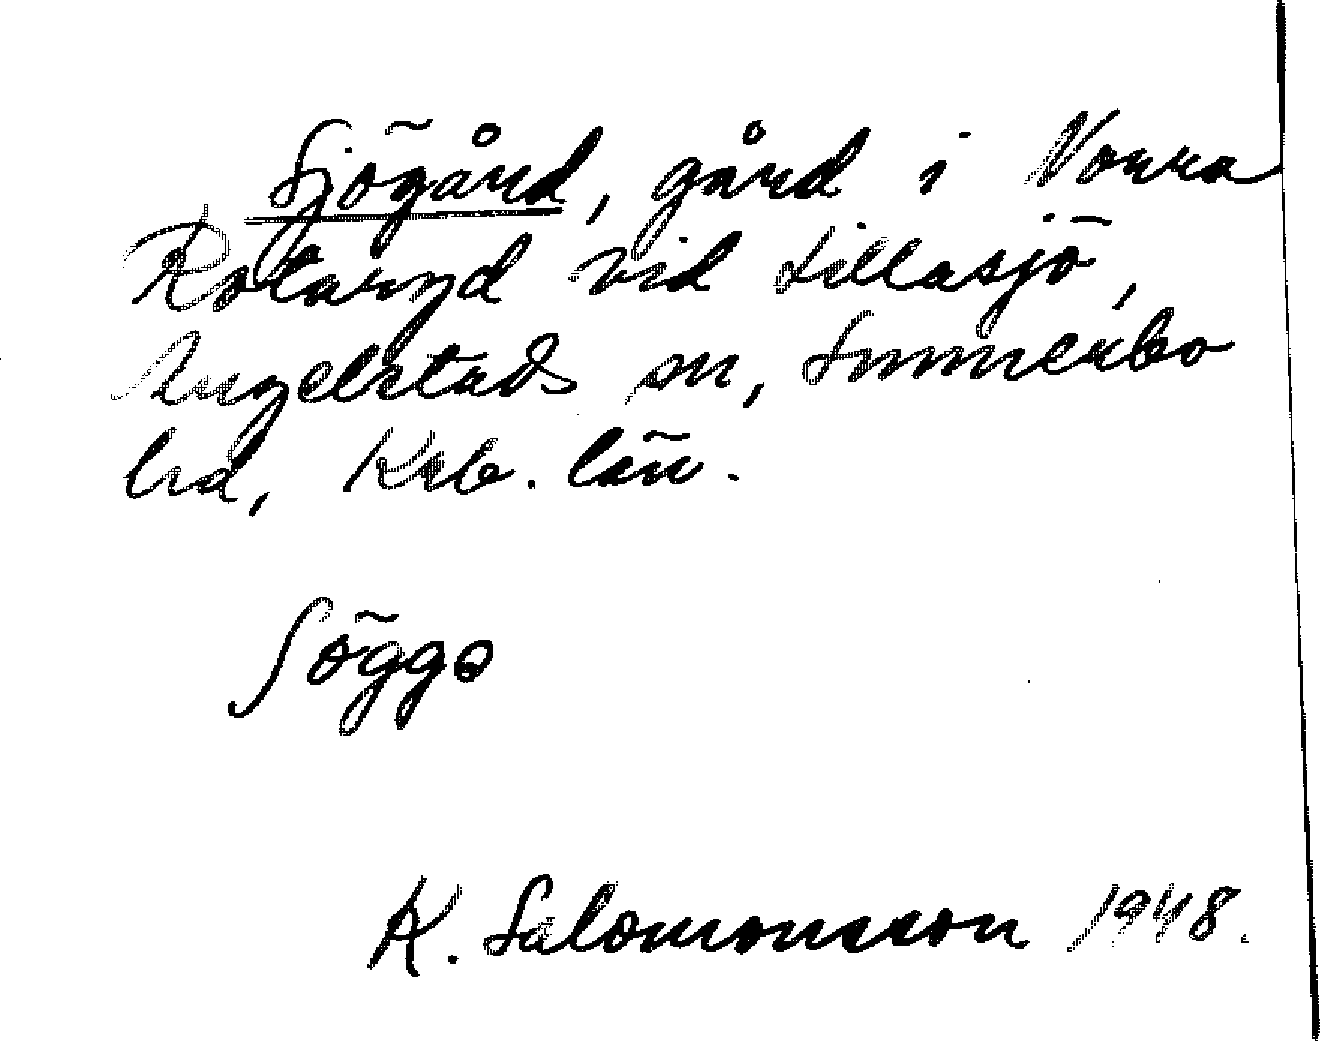 Sjögård, gård i Norra
Rotaryd vid Lillasjö,
Angelstads sn, Sunnerbo
hd, Krb. län.
Söggo
K. Salomonsson 1948.